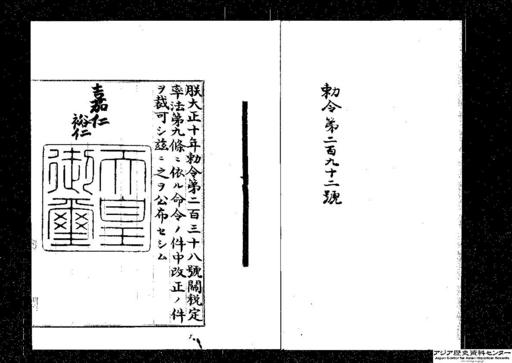 勅令第二百九十二號
朕大正十年勅令第二百三十八號關税定
率法第九條ニ依ル命令ノ件中改正ノ件
ヲ裁可シ茲ニ之ヲ公布セシム
嘉仁
裕仁
天皇
御璽
アジア歴史資料センター
Japan Center for Asian Historical Records